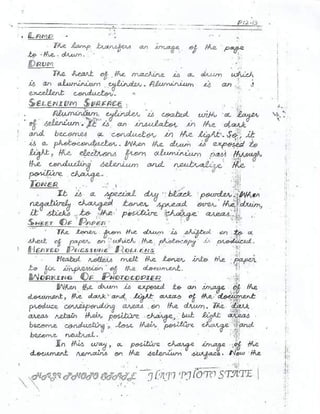 P12-13
LAMP
The lamp transfers an image of the page
to the drum.
DRUM
The heart of the machine is a drum which
is an aluminium cylinder. Aluminium is an
excellent conductor.
SELENIUM SURFACE:
Aluminium cylinder is coated with a layer
of selenium. It is an insulator in the dark
and becomes a conductor in the light. So, it
is a photoconductor. When the drum is exposed to
light, the electrons from aluminium pass through
the conducting selenium and neutralize the
positive charge.
TONER
It is a special dry black powder. When
negatively charged toner spread over the drum,
it sticks to the positive charge areas.
SHEET OF PAPER
The toner from the drum is shifted on to a
sheet of paper on which the photocopy is produced.
HEATED PRESSURE ROLLERS
Heated rollers melt the toner into the paper
to fix impression of the document.
WORKING OF PHOTOCOPIER
When the drum is exposed to an image of the
document, the dark and light areas of the document
produce corresponding areas on the drum. The dark
areas retain their positive charge, but light areas
become conducting, lose their positive charge and
become neutral.
In this way, a positive charge image of the
document remains on the selenium surface. Now the
JHATPHOTOSTATE